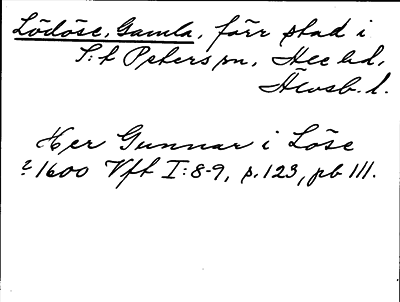 Lödöse, Gamla, förr stad i
S:t Peters sn, Ale hd,
Älvsb. l.
Her Gunnar i Löse
? 1600 Vft I:8-9, s. 123, pb 111.